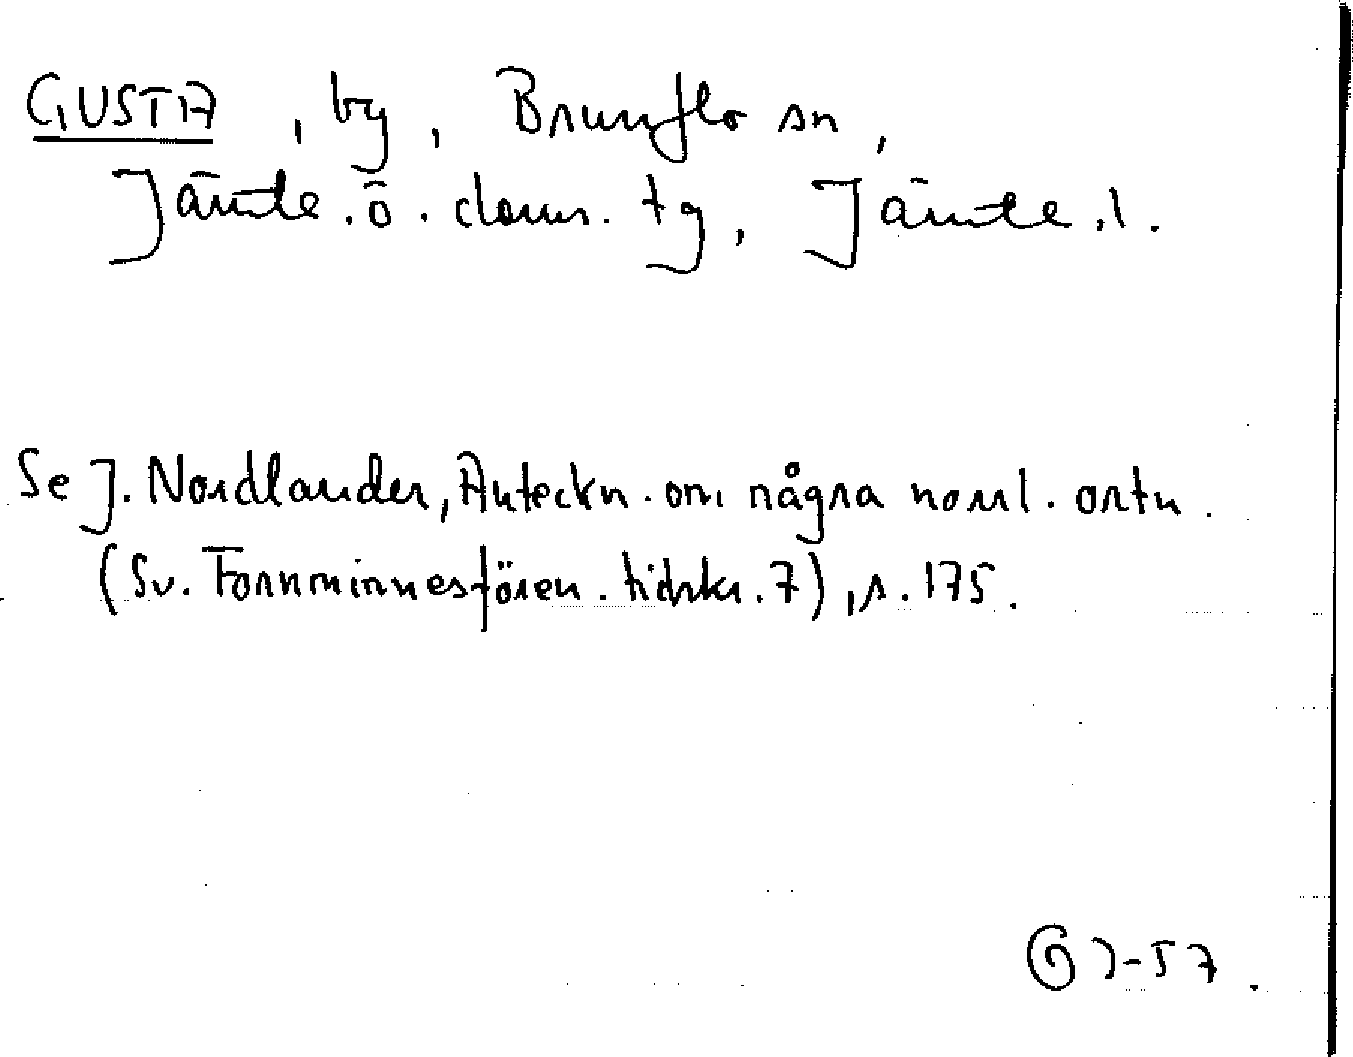 GUSTA, by, Brunflo sn,
Jämtl. ö. doms. tg, Jämtl. l.
Se J. Nordlander, Anteckn. om några norrl. ortn.
(Sv. Fornminnesfören. tidskr. 7), s. 175.
-57.